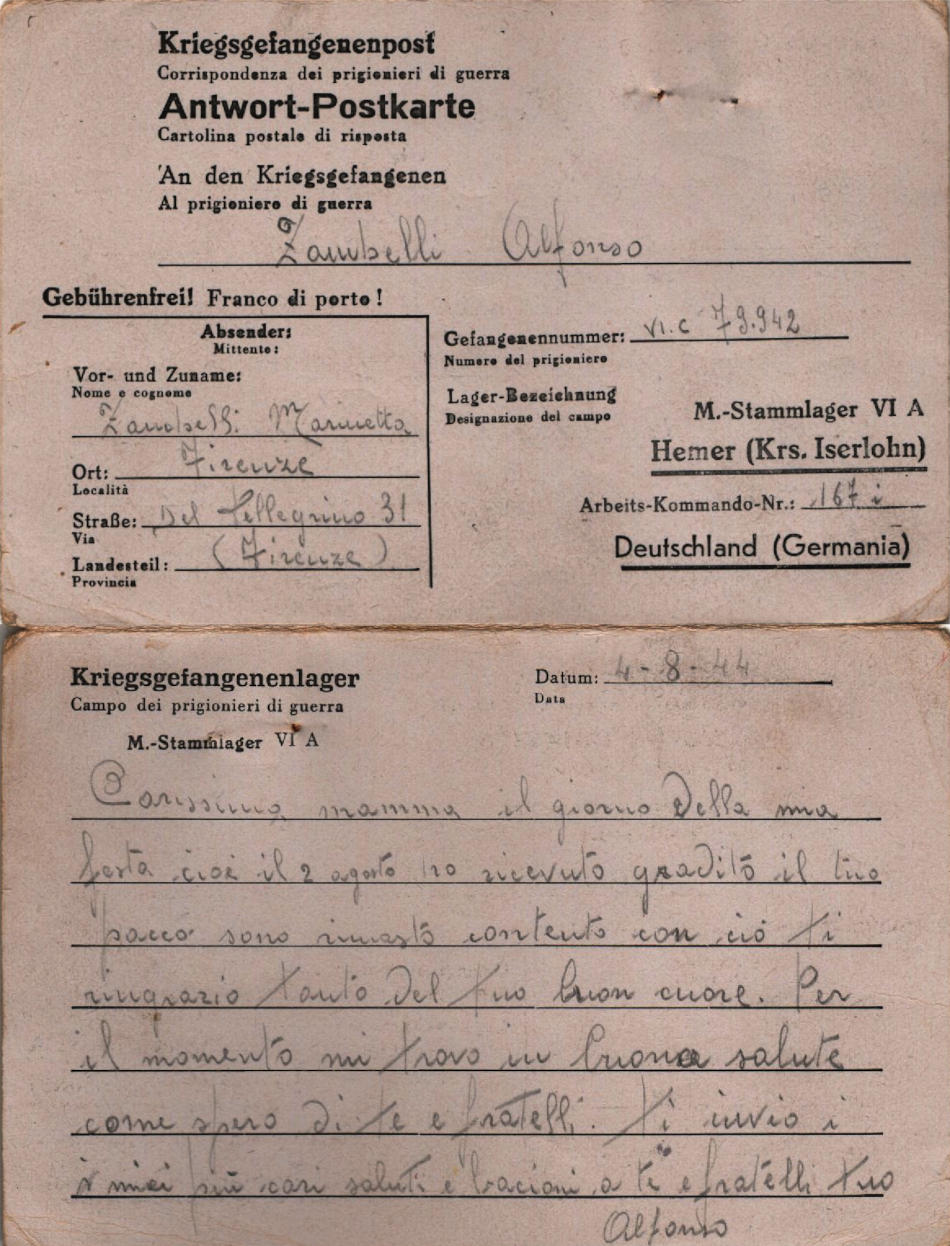 Kriegsgefangenenpost
Corrispondenza dei prigionieri di guerra
Antwort-Postkarte
Cartolina postale di risposta
An den Kriegsgefangenen
Al prigioniero di guerra
Zambelli Alfonso
Gebührenfrei! Franco di porto!
Absender:
Mittente:
Vor- und Zuname:
Nome e cognome
Zambelli Marinetta
Ort: Firenze
Località
Straße: Del Pellegrino 31
Via
Landesteil: (Firenze)
Provincia
Gefangenennummer: VI.C 79.942
Numero del prigioniero
Lager-Bezeichnung
Designazione del campo
M.-Stammlager VI A
Hemer (Krs. Iserlohn)
Arbeits-Kommando-Nr.: 167 i
Deutschland (Germania)
Kriegsgefangenenlager
Campo dei prigionieri di guerra
Datum: 4-8-44
Data
M.-Stammlager VI A
Carissima mamma il giorno della mia
festa cioè il 2 agosto ho ricevuto gradito il tuo
pacco sono rimasto contento con ciò ti
ringrazio tanto del tuo buon cuore. Per
il momento mi trovo in buona salute
come spero di te e fratelli. Ti invio i
i miei più cari saluti e bacioni a te e fratelli tuo
Alfonso